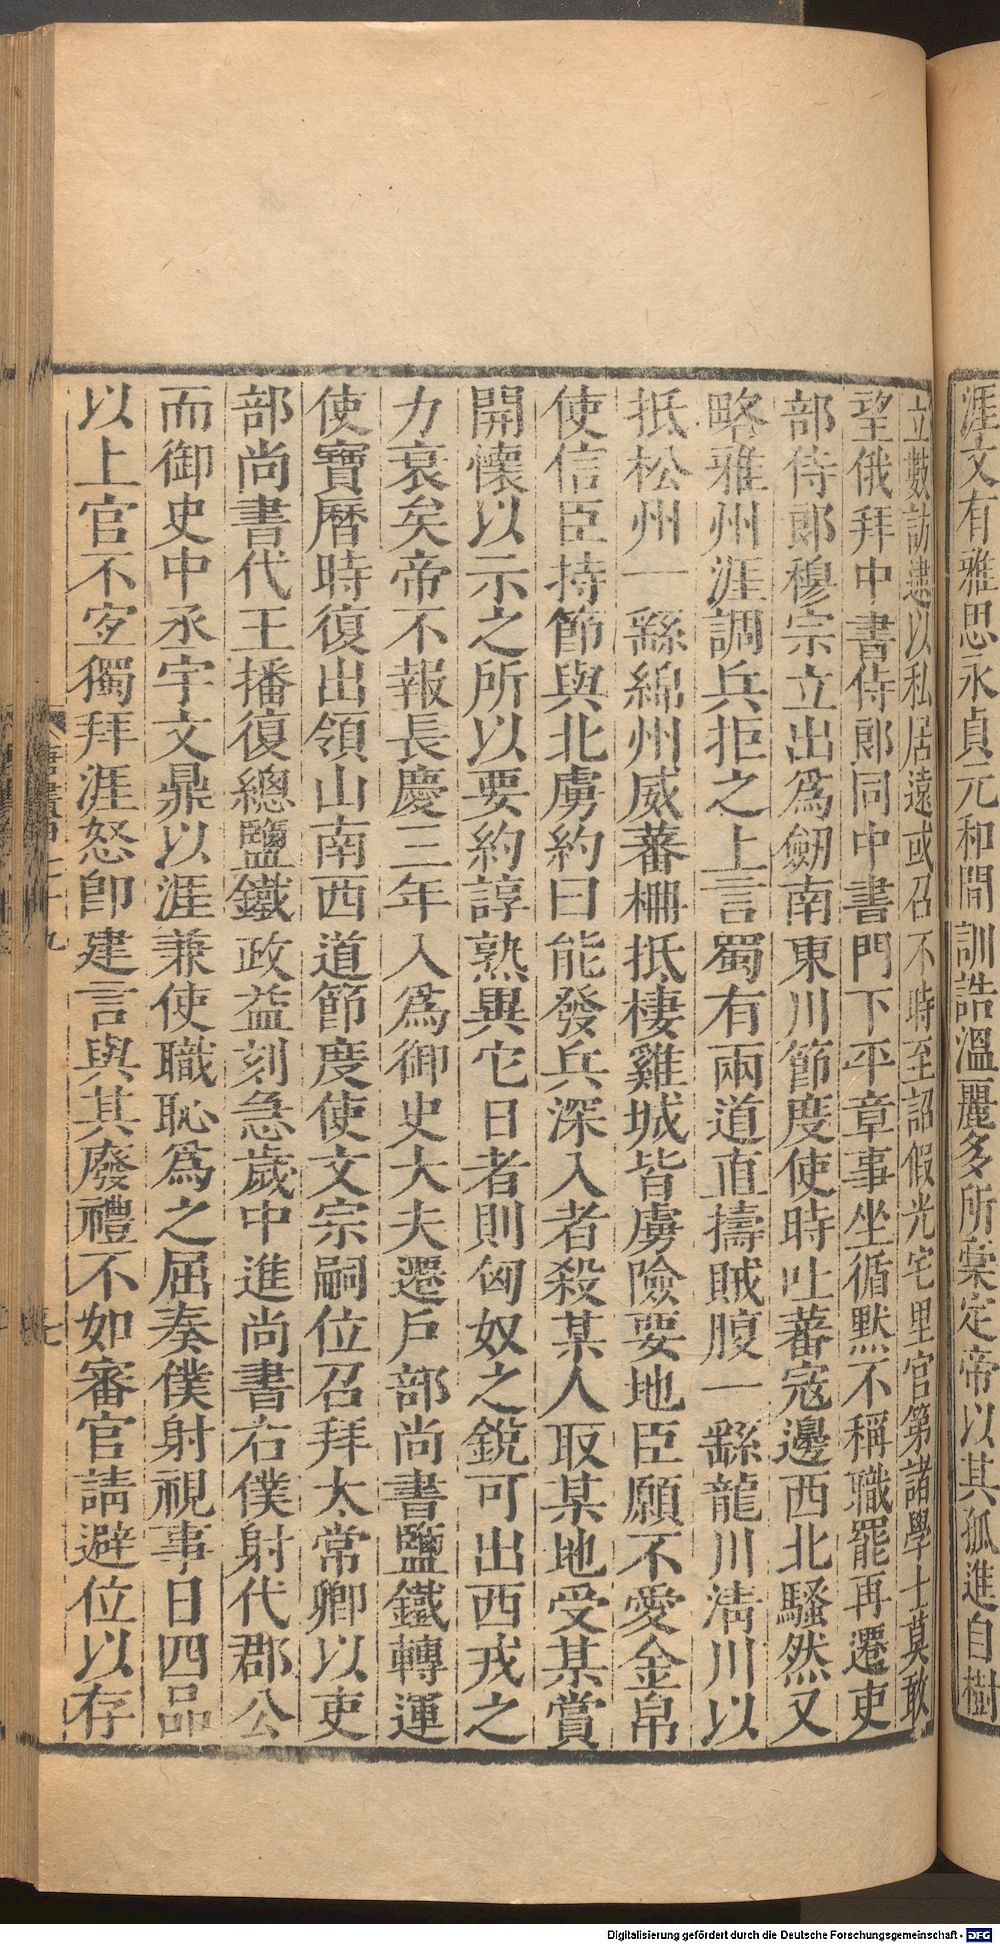 涯文有雅思永貞元和間訓誥溫麗多所稾定帝以其孤進自樹
立數訪逮以私居遠或召不時至詔假光宅里官第諸學士莫敢
望俄拜中書侍郎同中書門下平章事坐循默不稱職罷再遷吏
部侍郎穆宗立出爲劒南東川節度使時吐蕃寇邊西北騷然又
略雅州涯調兵拒之上言蜀有兩道直擣賊腹一繇龍川清川以
抵松州一繇綿州威蕃柵抵棲雞城皆虜險要地臣願不愛金帛
使信臣持節與北虜約曰能發兵深入者殺某人取某地受某賞
開懷以示之所以要約諄熟異它日者則匈奴之銳可出西戎之
力衰矣帝不報長慶三年入爲御史大夫遷戶部尚書鹽鐵轉運
使寶曆時復出領山南西道節度使文宗嗣位召拜太常卿以吏
部尚書代王播復總鹽鐵政益刻急歲中進尚書右僕射代郡公
而御史中丞宇文鼎以涯兼使職恥爲之屈奏僕射視事日四品
以上官不宜獨拜涯怒卽建言與其廢禮不如審官請避位以存
唐書百七十九
Digitalisierung gefördert durch die Deutsche Forschungsgemeinschaft - DFG